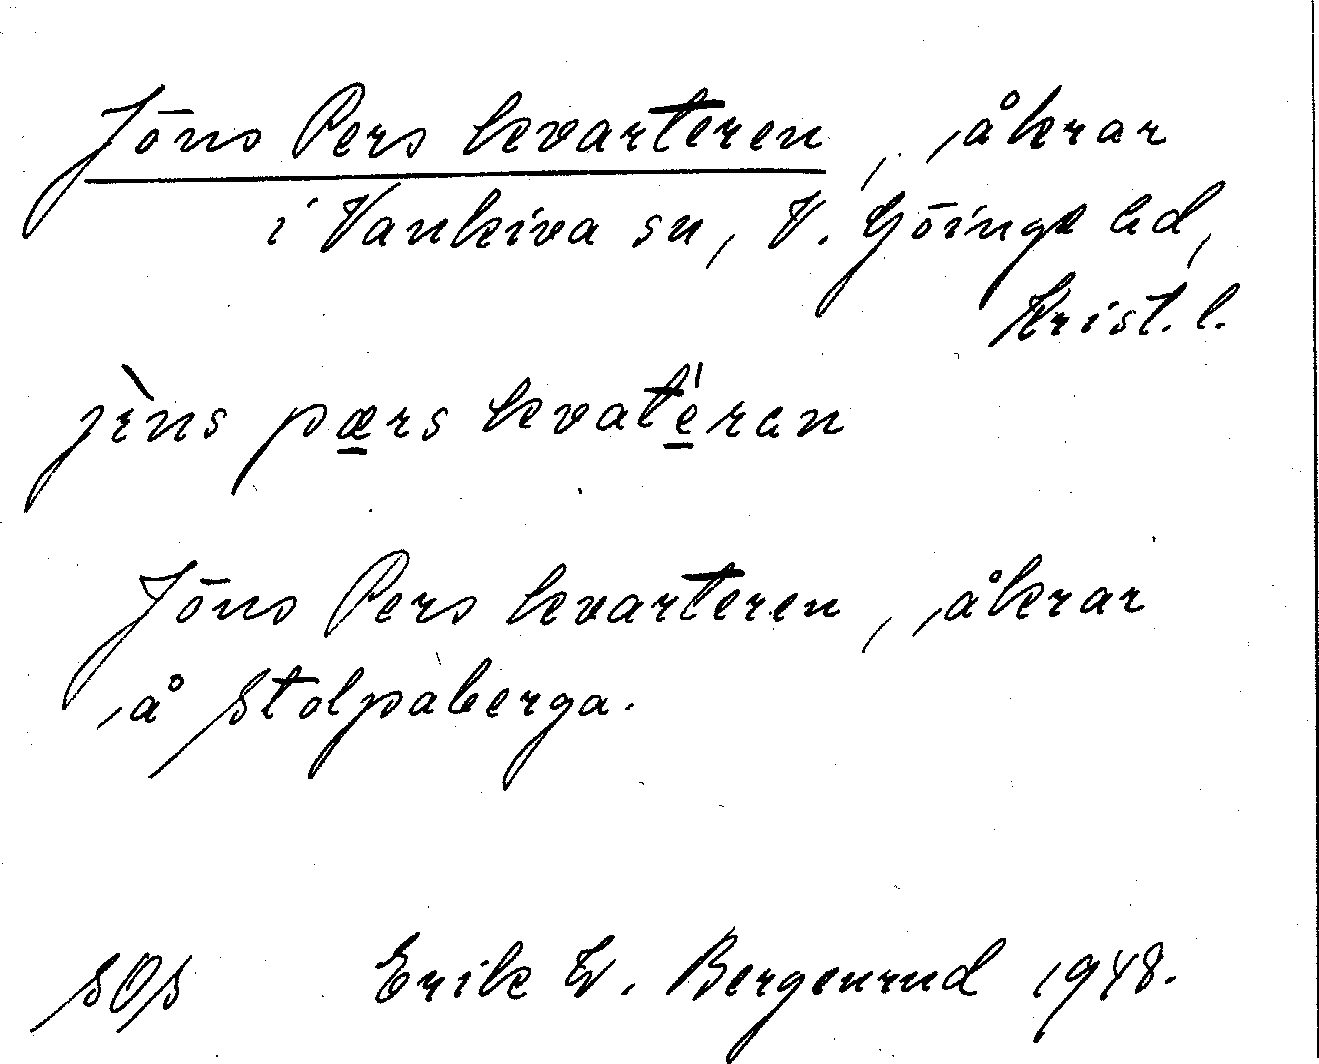 Jöns Pers kvarteren, åkrar
i Vankiva sn, V. Göinge hd,
Krist. l.
jìns pærs kvatéran
Jöns Pers kvarteren, åkrar
å Stolpaberga.
SOS Erik W. Bergenrud 1948.